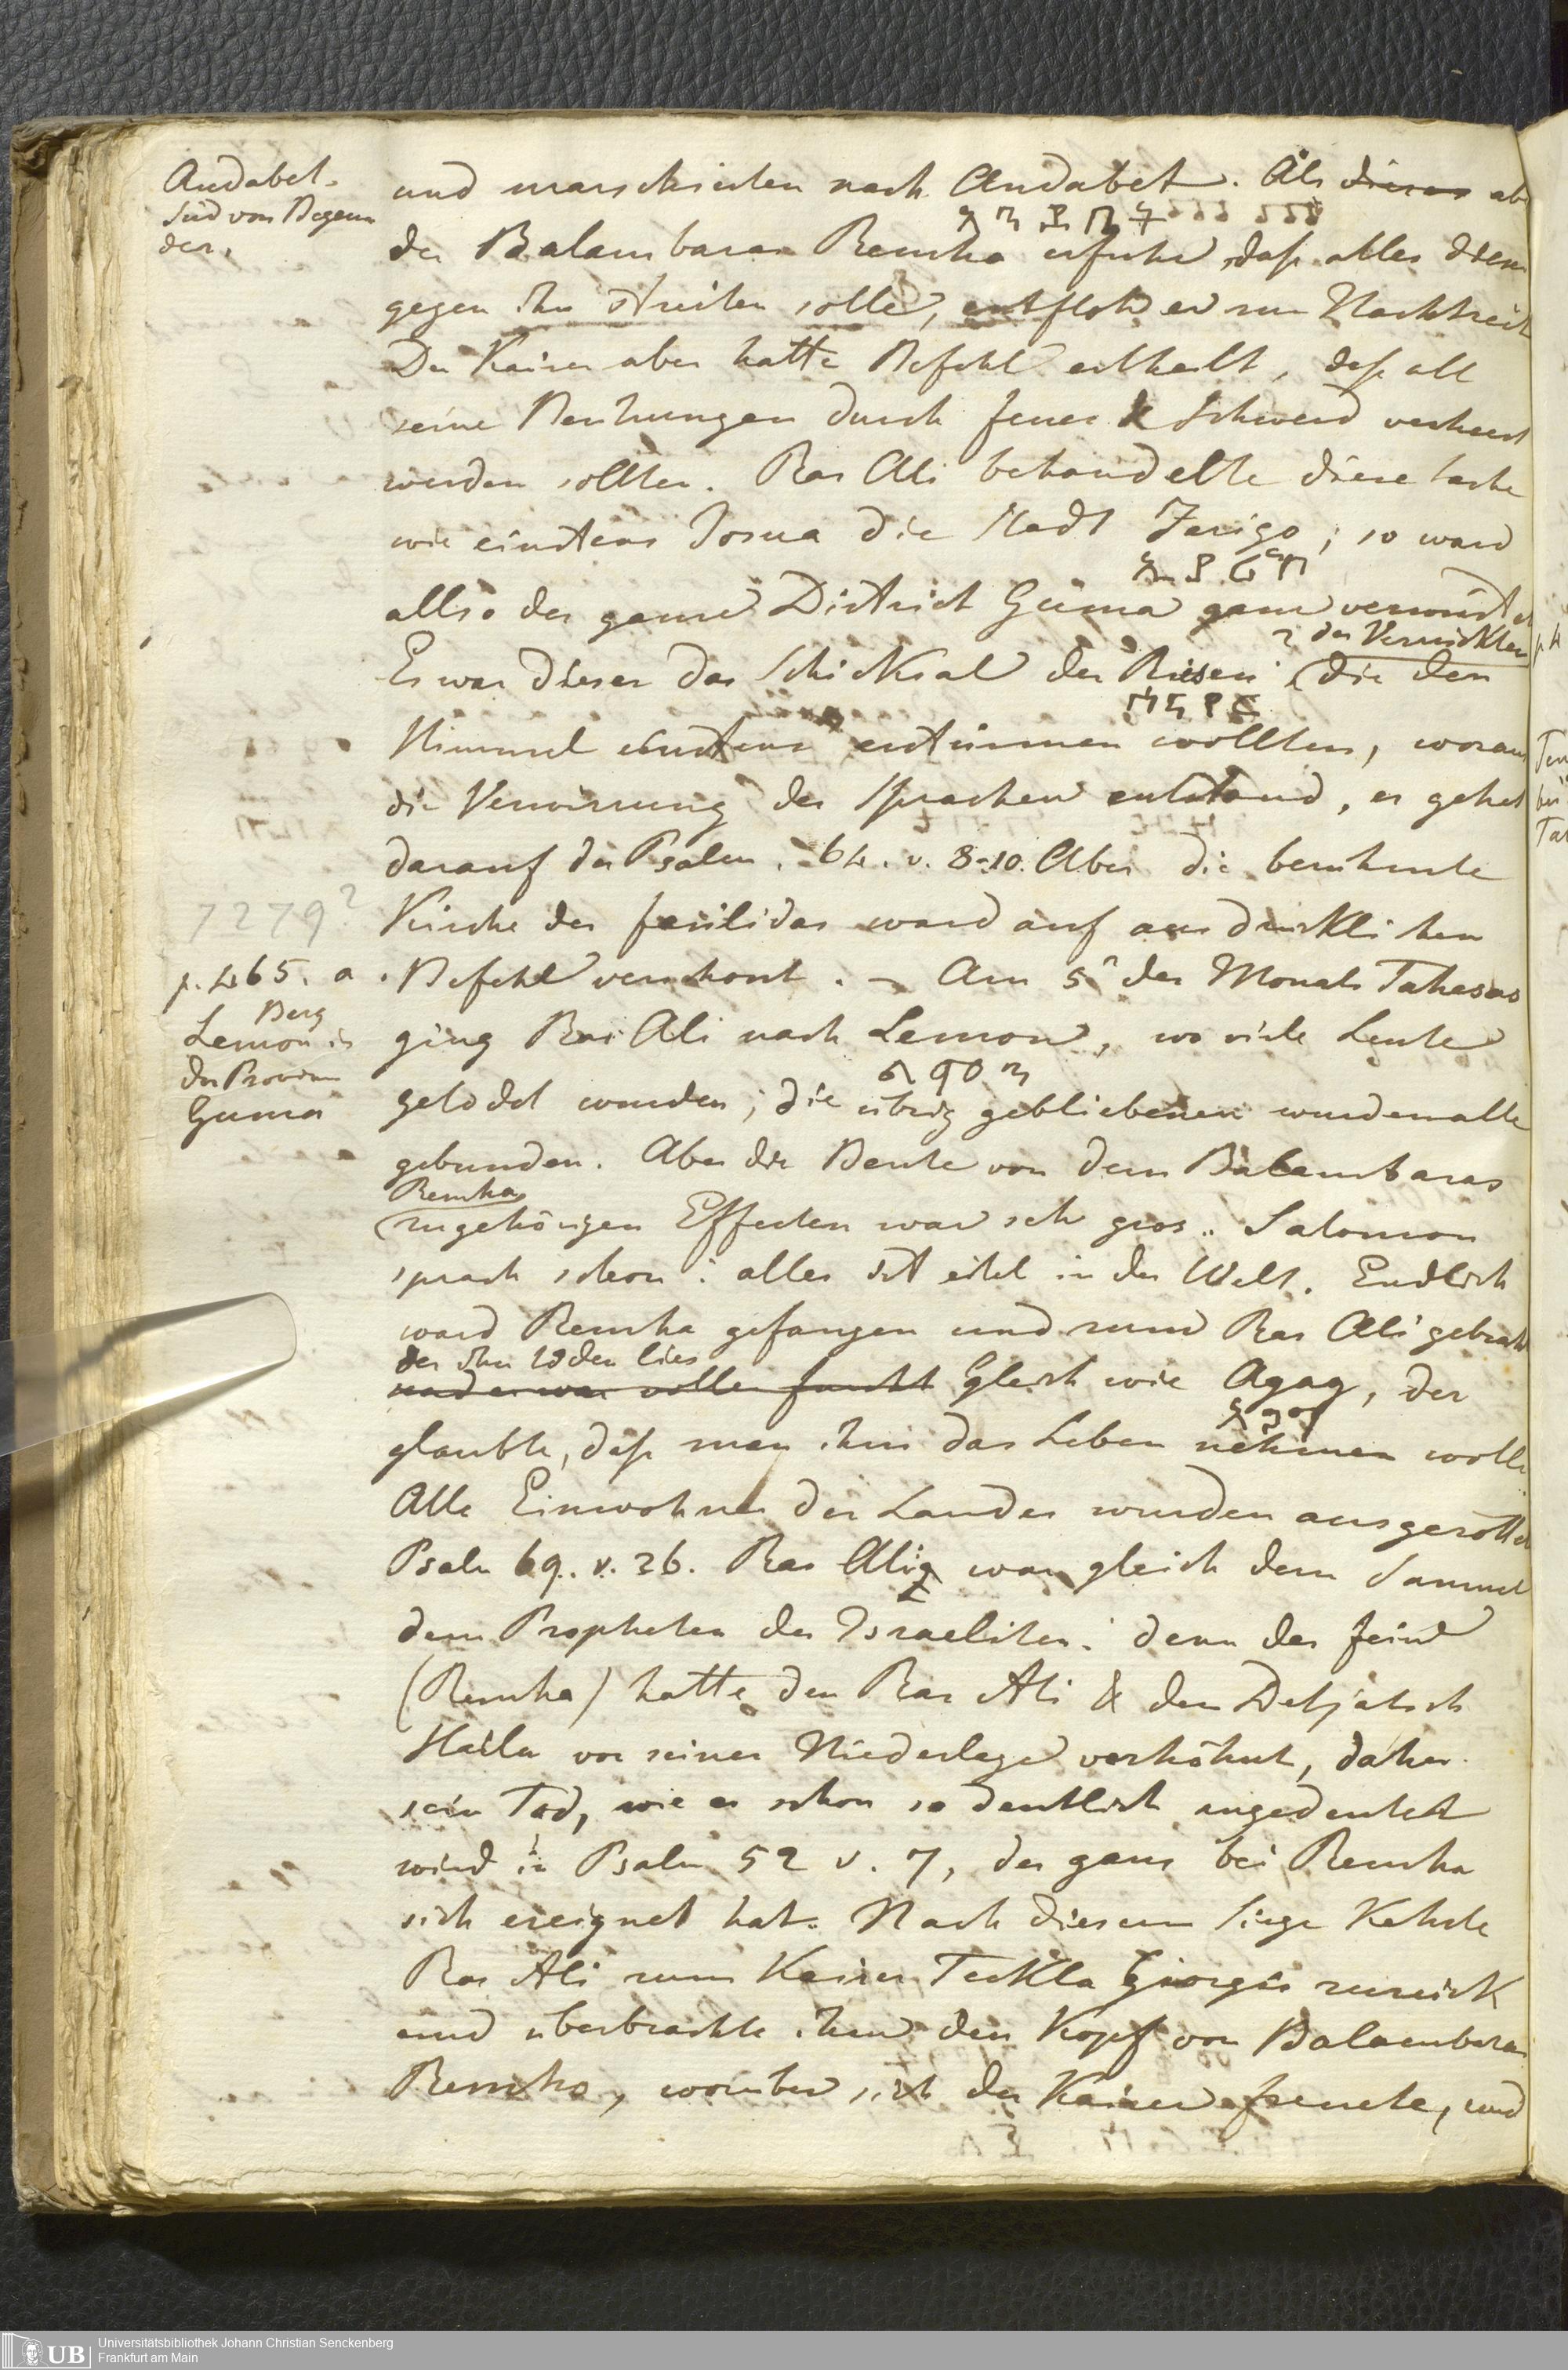 Andabet.
Süd von Begem
der.
und marschierten nach Andabet. Als dieses ab
der Balambaras Remha erfuhr, daß alles dieses
gegen ihn streiten solle, entfloh er zur Nachtzeit
Der Kaiser aber hatte Befehl ertheilt, daß all
seine Besitzungen durch Feuer & Schwerd verheert
werden sollten. Ras Ali behandelte diese Sache
wie einstens Josua die Stadt Jerigo; so ward
allso der ganze District Guma ganz verwüstet
der Vernichten
Es war dieses das Schicksal der Riesen die den
Himmel einstens erstürmen wollten, woraus
die Verwirrung der Sprachen entstand, es gehet
darauf der Psalm. 64. v. 8-10. Aber die berühmte
7279?
Kirche des Fasilidas ward auf ausdrücklichen
p. 465. a
Befehl verschont. – Am 5n des Monats Tahesas
Berg
Lemon in
der Provinz
Guma
ging Ras Ali nach Lemon, wo viele Leute
ለሞን
getödet wurden; die übrig gebliebenen wurden alle
gebunden. Aber die Beute von dem Balambaras
Remha
zugehörigen Effecten war seh gros. Salomon
sprach schon: alles ist eitel in der Welt. Endlich
ward Remha gefangen und zum Ras Ali gebracht
der ihn töden lies
und er war voller furcht Gleich wie Agag, der
አጋግ
glaubte, daß man ihm das Leben nehmen wolle
Alle Einwohner des Landes wurden ausgerottet
Psalm 69. v. 26. Ras Ali war gleich dem Samuel
dem Propheten der Israeliten: denn der Feind
(Remha) hatte den Ras Ali & den Detjatsch
Hailu vor seiner Niederlage verhöhnt, daher
sein Tod, wie es schon so deutlich angedeutet
wird in Psalm 52 v. 7, der ganz bei Remha
sich ereignet hat. Nach diesem Siege Kehrte
Ras Ali zum Kaiser Teckla Giorgis zurück
und überbrachte ihm den Kopf von Balambaras
Remha, worüber sich der Kaiser freute, und
Universitätsbibliothek Johann Christian Senckenberg
Frankfurt am Main
UB